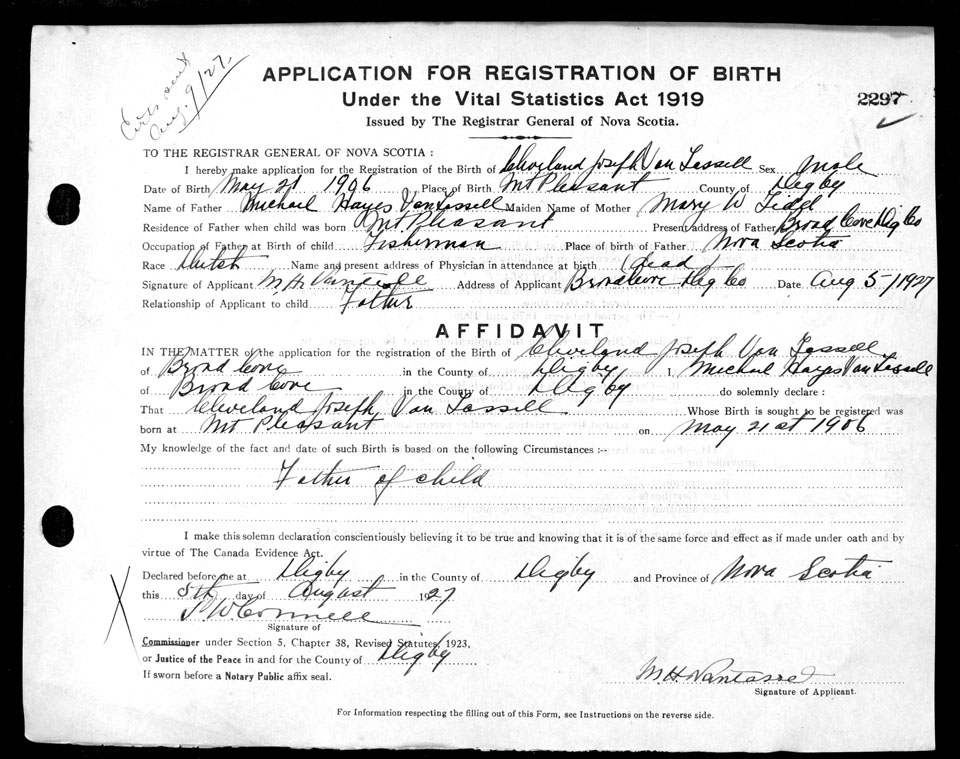 Cert sent
Aug. 9/27.
APPLICATION FOR REGISTRATION OF BIRTH
Under the Vital Statistics Act 1919
2297
Issued by The Registrar General of Nova Scotia.
TO THE REGISTRAR GENERAL OF NOVA SCOTIA :
I hereby make application for the Registration of the Birth of Cleveland Joseph Van Tassell Sex Male
Date of Birth May 21 1906 Place of Birth Mt Pleasant County of Digby
Name of Father Michael Hayes VanTassell Maiden Name of Mother Mary W Tidd
Residence of Father when child was born Mt Pleasant Present address of Father Broad Cove Dig Co
Occupation of Father at Birth of child Fisherman Place of birth of Father Nova Scotia
Race Dutch Name and present address of Physician in attendance at birth (dead)
Signature of Applicant M H Address of Applicant Broadcove Dig Co Date Aug 5-/1927
Relationship of Applicant to child Father
AFFIDAVIT
IN THE MATTER of the application for the registration of the Birth of Cleveland Joseph Van Tassell
of Broad Cove in the County of Digby I, Michael Hayes Van Tassell
of Broad Cove in the County of Digby do solemnly declare :
That Cleveland Joseph Van Tassell Whose Birth is sought to be registered was
born at Mt Pleasant on May 21st 1906
My knowledge of the fact and date of such Birth is based on the following Circumstances :--
Father of child
I make this solemn declaration conscientiously believing it to be true and knowing that it is of the same force and effect as if made under oath and by
virtue of The Canada Evidence Act.
Declared before me at Digby in the County of Digby and Province of Nova Scotia
this 5th day of August 1927
Signature of
Commissioner under Section 5, Chapter 38, Revised Statutes, 1923,
or Justice of the Peace in and for the County of Digby
If sworn before a Notary Public affix seal.
M H Vantassel
Signature of Applicant.
For Information respecting the filling out of this Form, see Instructions on the reverse side.